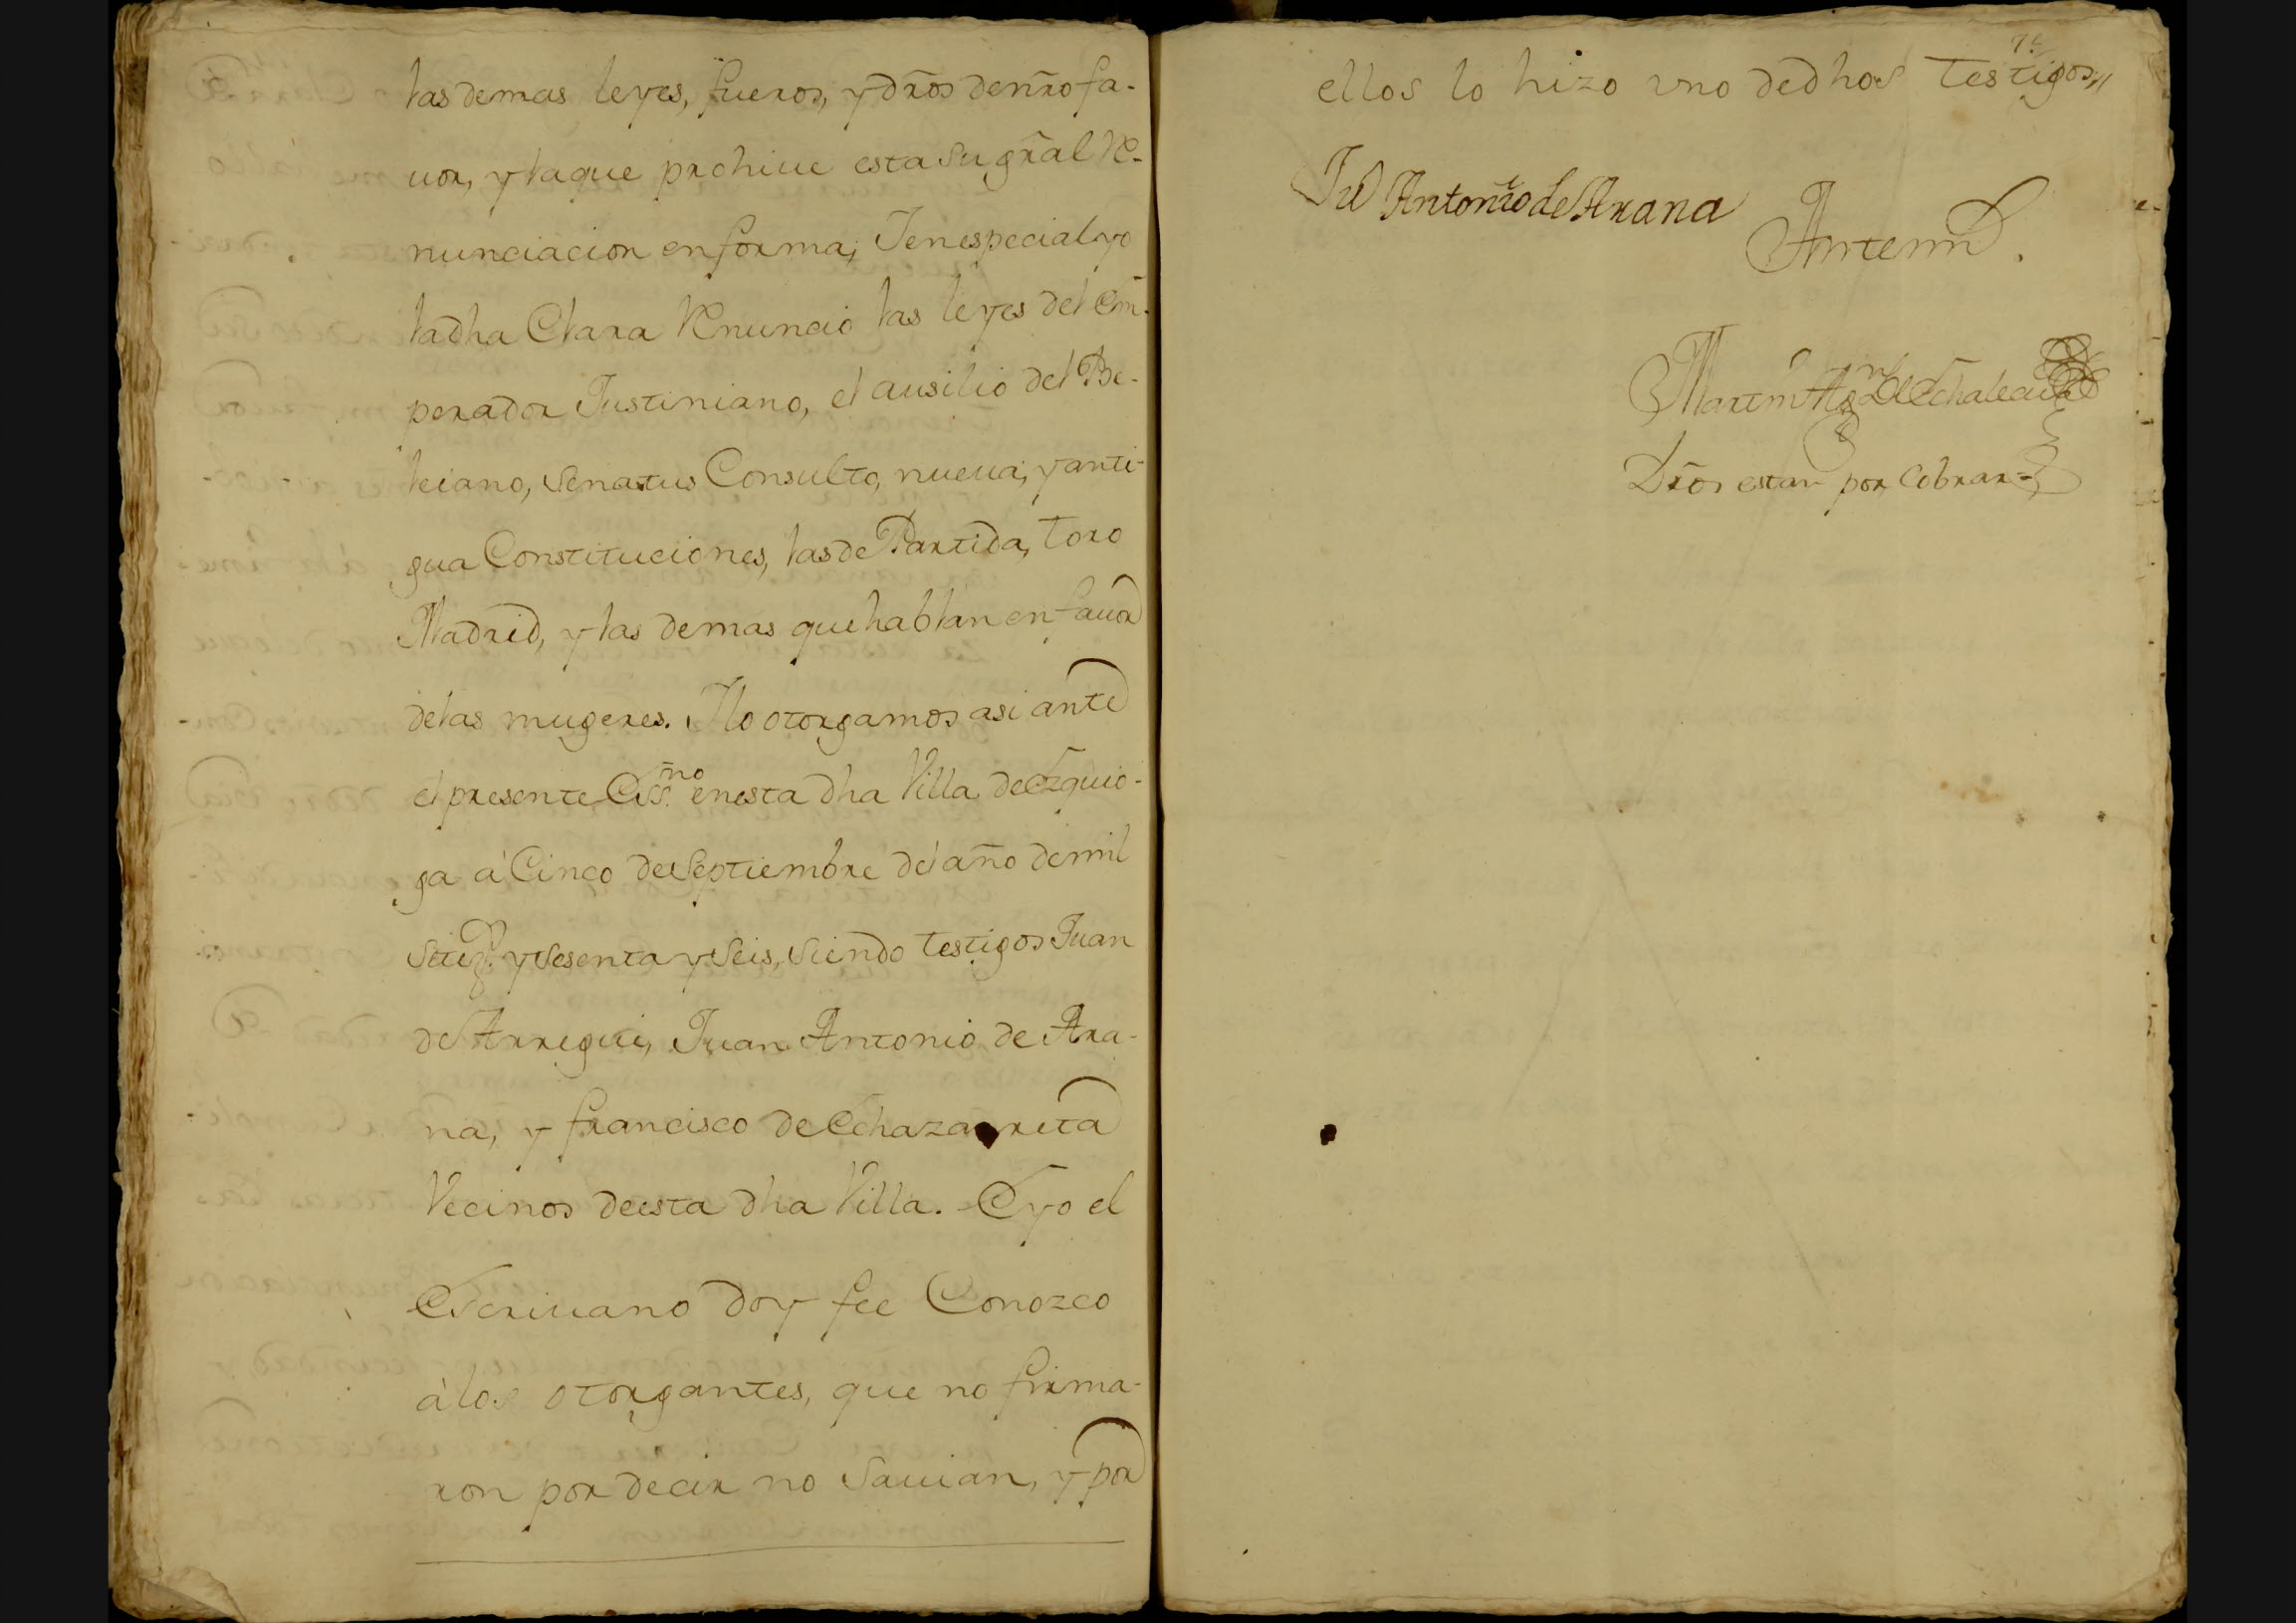 las demas leyes, fueros, y dr̃os de nr̃o fa-
uor, y la que prohiue esta su gr̃al Re-
nunciacion en forma; I en especial yo
la dha Clara Renuncio las leyes del Em-
perador Justiniano, el ausilio del Be-
leiano, Senatus Consulto, nueua, y anti-
gua Constituciones, las de Partida, Toro
Madrid, y las demas que hablan en fauor
de las mugeres. I lo otorgamos asi ante
el presente Ess.no en esta dha Villa de Ezquio-
ga á Cinco de Septiembre del año de mil
Setez.s y Sesenta y Seis, Siendo testigos Juan
de Arregui, Juan Antonio de Ara-
na, y francisco de Echazarreta
Vecinos de esta dha Villa. E yo el
Escriuano doy fee Conozco
á los otorgantes, que no firma-
ron por decir no Sauian, y por
ellos lo hizo vno de dhos testigos,,
Ju Antonio de Arana
Antemi.
Martin Ag.n de Echalecu
Dr̃os estan por Cobrar=